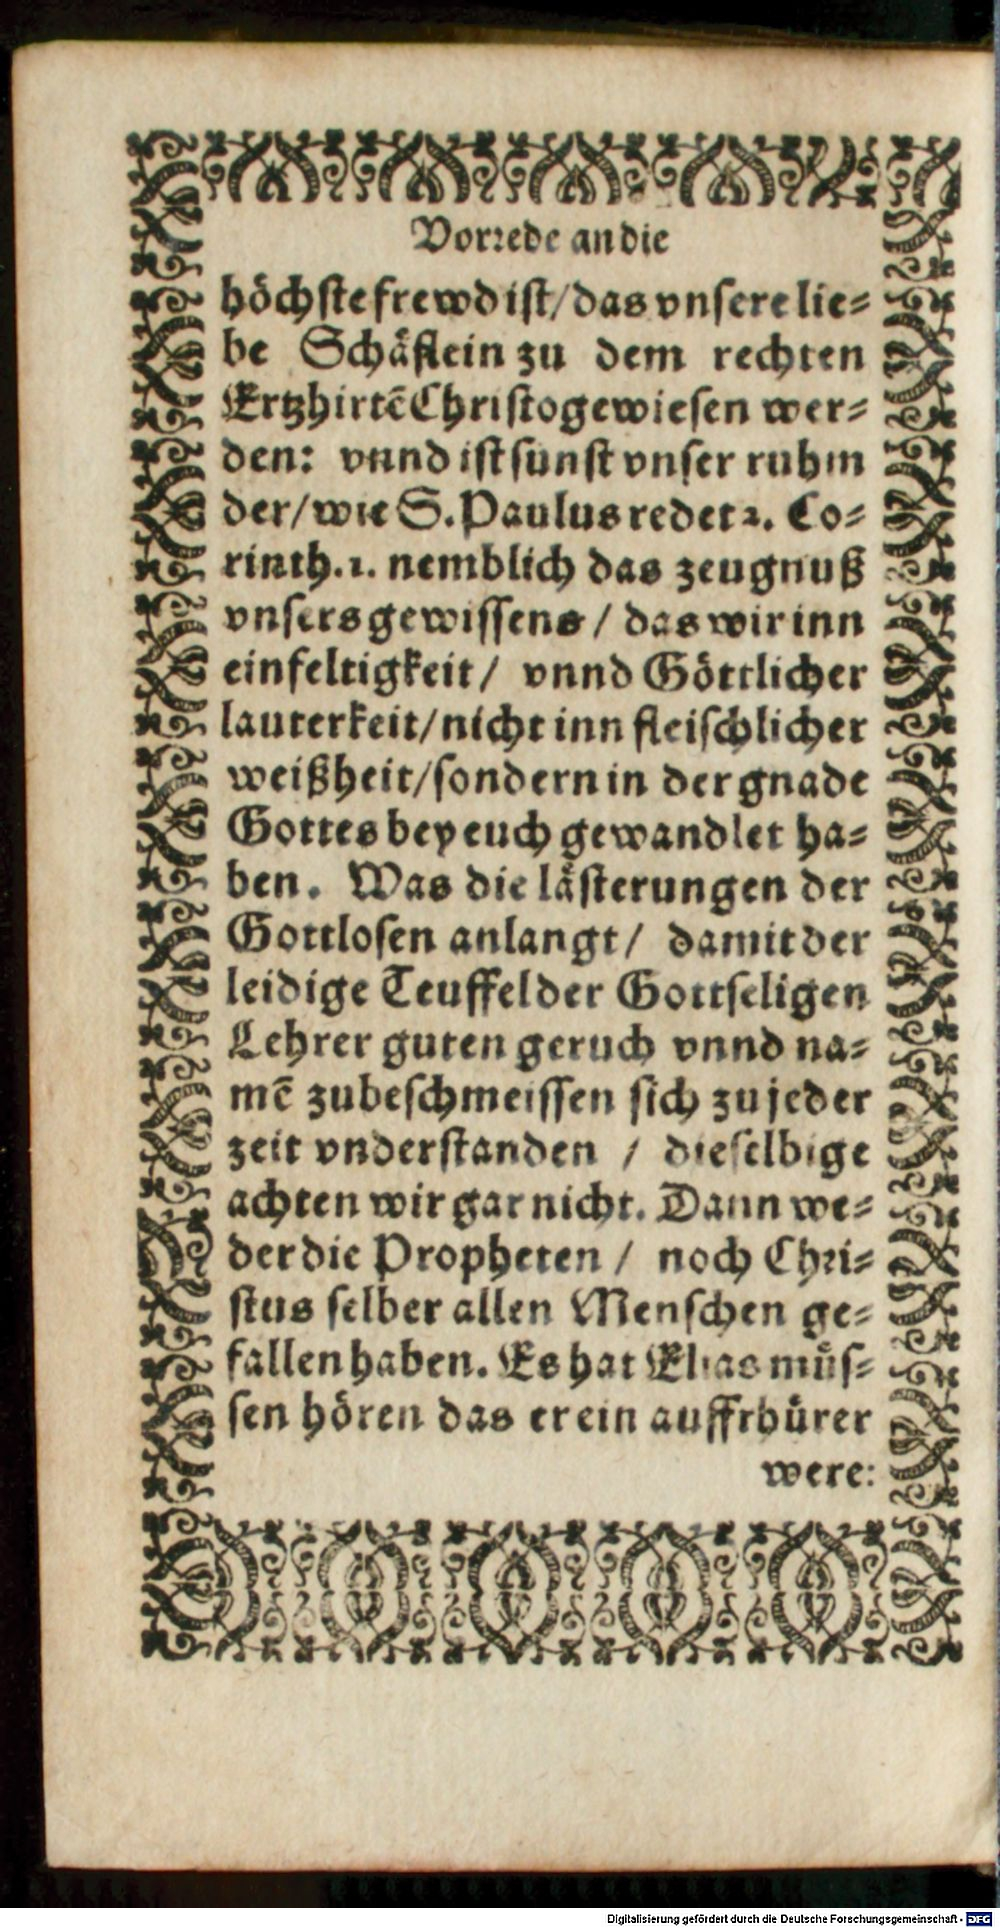 Vorrede an die
höchste frewd ist/das vnsere lie-
be Schäflein zu dem rechten
Ertzhirtē Christo gewiesen wer-
den: vnnd ist sunst vnser ruhm
der/wie S. Paulus redet 2. Co-
rinth. 1. nemblich das zeugnuß
vnsers gewissens / das wir inn
einfeltigkeit/ vnnd Göttlicher
lauterkeit/nicht inn fleischlicher
weißheit/sondern in der gnade
Gottes bey euch gewandlet ha-
ben. Was die lästerungen der
Gottlosen anlangt/ damit der
leidige Teuffel der Gottseligen
Lehrer guten geruch vnnd na-
mē zubeschmeissen sich zu jeder
zeit vnderstanden / dieselbige
achten wir gar nicht. Dann we-
der die Propheten / noch Chri-
stus selber allen Menschen ge-
fallen haben. Es hat Elias müs-
sen hören das er ein auffrhürer
were:
Digitalisierung gefördert durch die Deutsche Forschungsgemeinschaft - DFG